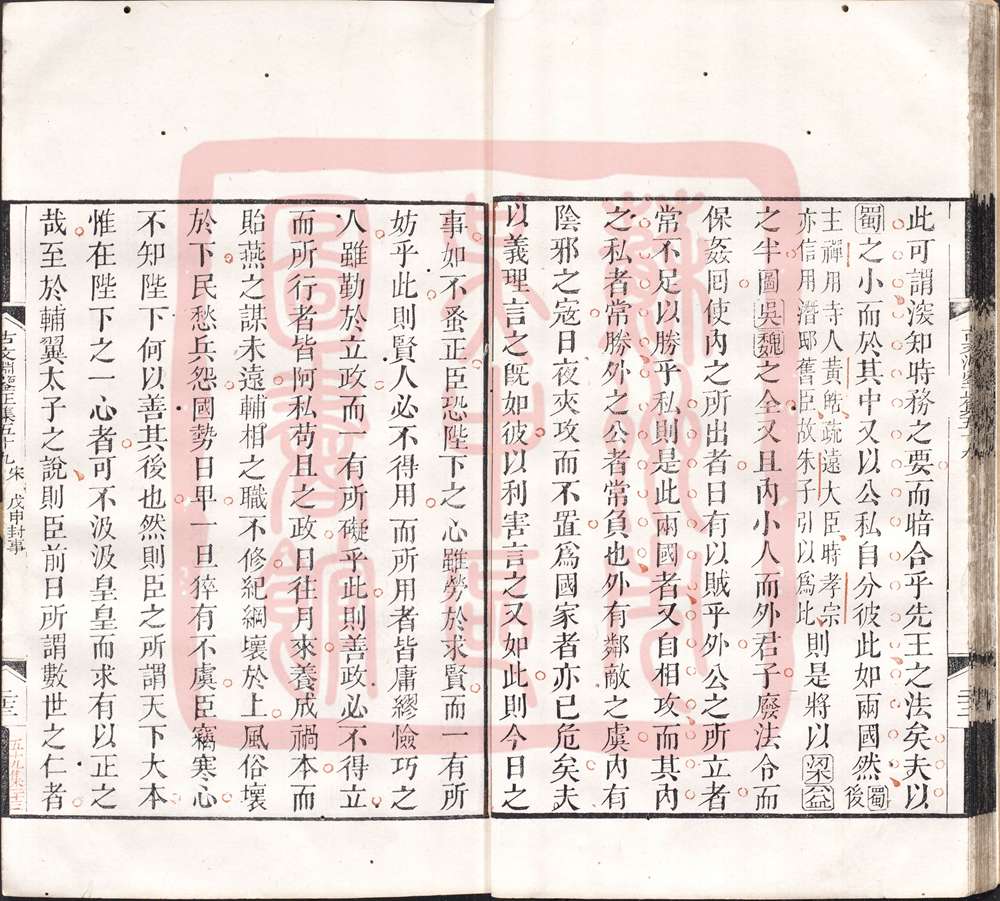 此可謂深知時務之要而暗合乎先王之法矣夫以
蜀之小而於其中又以公私自分彼此如兩國然蜀後
主禪用寺人黃皓疏遠大臣時孝宗
亦信用潛邸舊臣故朱子引以爲此
則是將以梁益
之半圖吳魏之全又且內小人而外君子廢法令而
保姦囘使內之所出者日有以賊乎外公之所立者
常不足以勝乎私則是此兩國者又自相攻而其內
之私者常勝外之公者常負也外有鄰敵之虞內有
陰邪之寇日夜夾攻而不置爲國家者亦已危矣夫
以義理言之旣如彼以利害言之又如此則今日之
事如不蚤正臣恐陛下之心雖勞於求賢而一有所
妨乎此則賢人必不得用而所用者皆庸繆憸巧之
人雖勤於立政而一有所礙乎此則善政必不得立
而所行者皆阿私苟且之政日往月來養成禍本而
貽燕之謀未遠輔相之職不修紀綱壞於上風俗壞
於下民愁兵怨國勢日卑一旦猝有不虞臣竊寒心
不知陛下何以善其後也然則臣之所謂天下大本
惟在陛下之一心者可不汲汲皇皇而求有以正之
哉至於輔翼太子之說則臣前日所謂數世之仁者
古文淵鑒正集五十九 宋 戊申封事